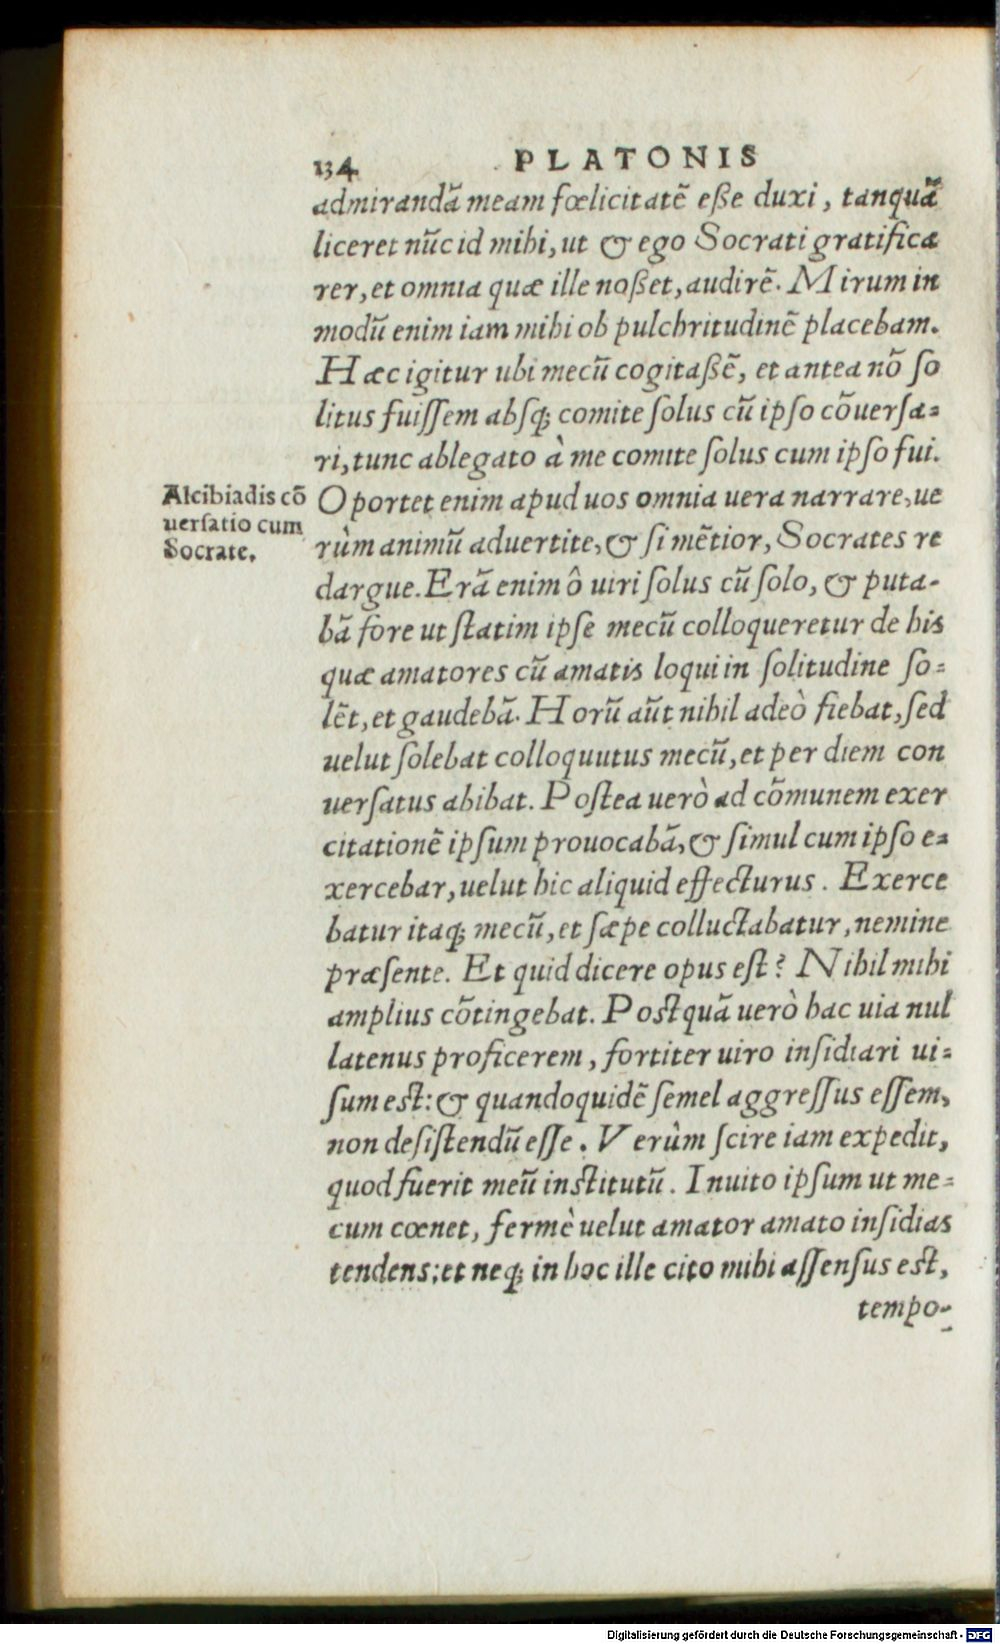 134 PLATONIS
admirandã meam fœlicitatẽ eße duxi, tanquã
liceret nũc id mihi, ut & ego Socrati gratificа
rer, et omnia quæ ille noßet, audirẽ. Mirum in
modũ enim iam mihi ob pulchritudinẽ placebam.
Hæc igitur ubi mecũ cogitaßẽ, et antea nõ ſo
litus fuiſſem abſq; comite ſolus cũ ipſo cõuerſa=
ri, tunc ablegato à me comite ſolus cum ipſo fui.
Alcibiadis cõ
uerſatio cum
Socrate.
Oportet enim apud uos omnia uera narrare, ue
rùm animũ aduertite, & ſi mẽtior, Socrates re
dargue. Erã enim ô uiri ſolus cũ ſolo, & puta-
bã fore ut ſtatim ipſe mecũ colloqueretur de his
quæ amatores cũ amatis loqui in ſolitudine ſo=
lẽt, et gaudebã. Horũ aũt nihil adeò fiebat, ſed
uelut ſolebat colloquutus mecũ, et per diem con
uerſatus abibat. Poſtea uerò ad cõmunem exer
citationẽ ipſum prouocabã, & ſimul cum ipſo e=
xercebar, uelut hic aliquid effecturus. Exerce
batur itaq; mecũ, et ſæpe colluctabatur, nemine
præſente. Et quid dicere opus eſt? Nihil mihi
amplius cõtingebat. Poſtquã uerò hac uia nul
latenus proficerem, fortiter uiro inſidiari ui=
ſum eſt: & quandoquidẽ ſemel aggreſſus eſſem,
non deſiſtendũ eſſe. Verùm ſcire iam expedit,
quod fuerit meũ inſtitutũ. Inuito ipſum ut me=
cum cœnet, fermè uelut amator amato inſidias
tendens; et neq; in hoc ille cito mihi aſſenſus eſt,
tempo-
Digitalisierung gefördert durch die Deutsche Forschungsgemeinschaft - DFG